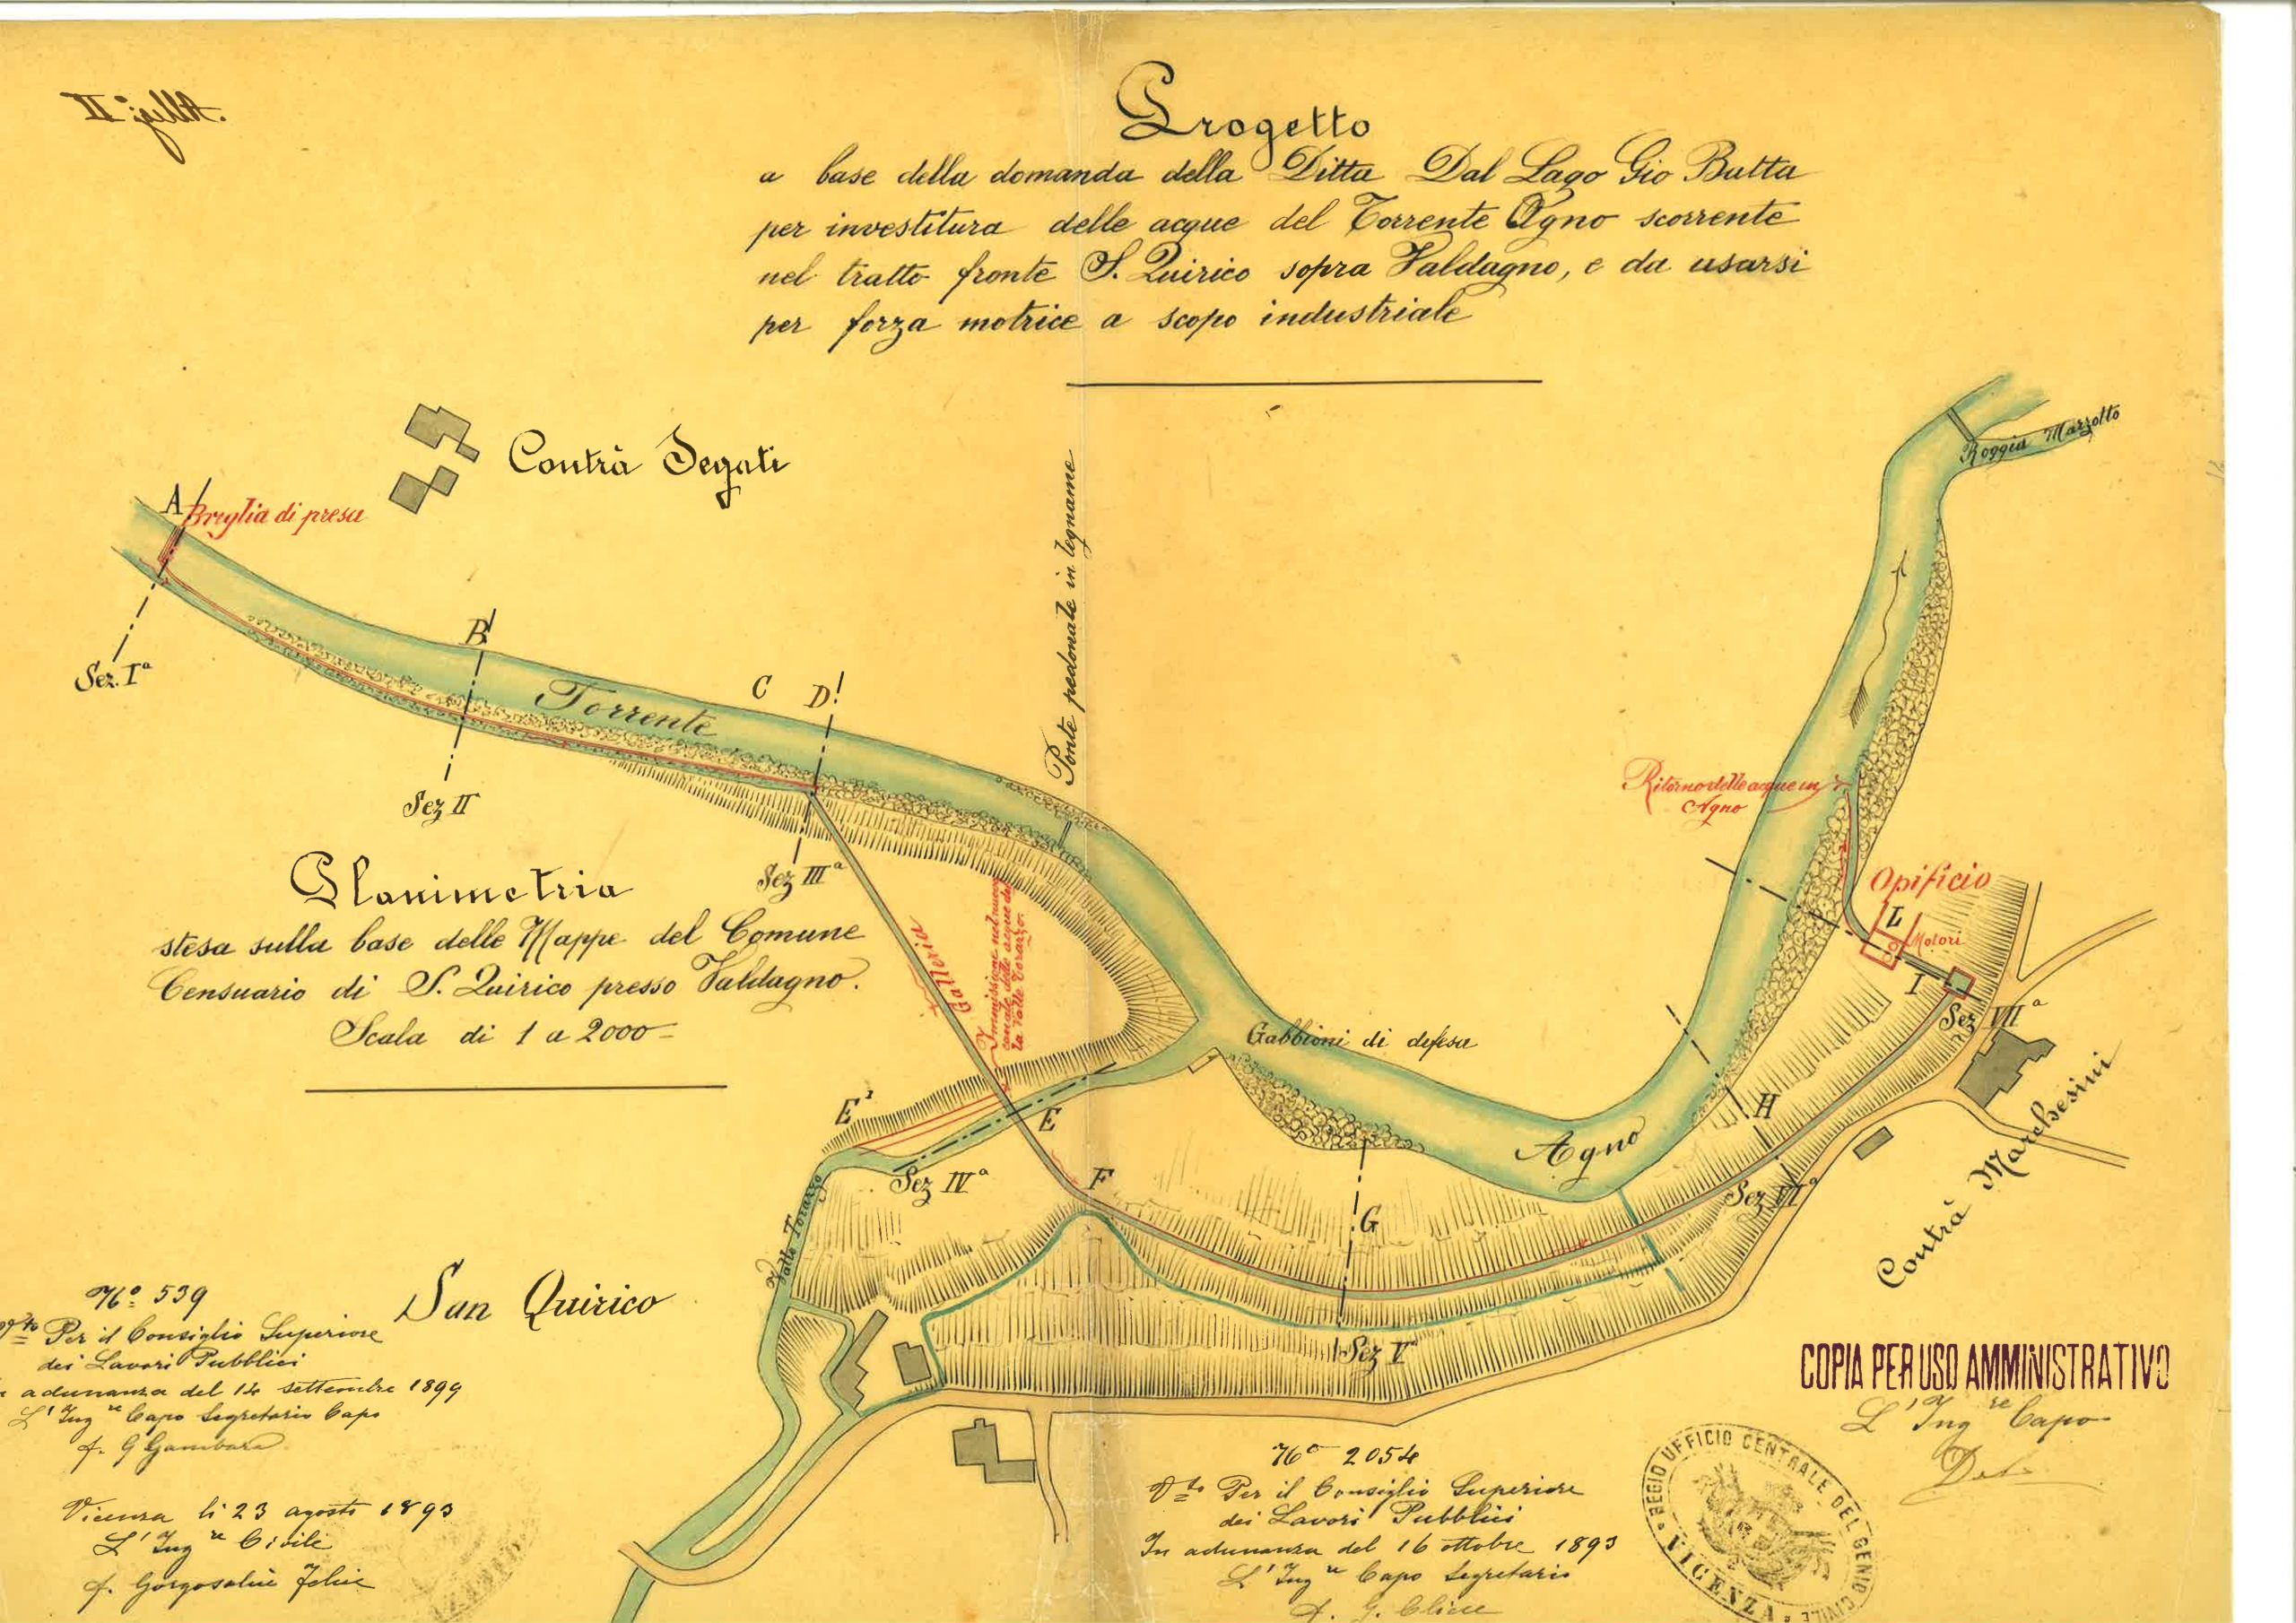 II
Progetto
a base della domanda della Ditta Dal Lago Gio Batta
per investitura delle acque del Torrente Agno scorrente
nel tratto fronte S. Quirico sopra Valdagno, e da usarsi
per forza motrice a scopo industriale
Contrà Segati
Roggia Marzotto
A
Briglia di presa
Ponte pedonale in legname
Sez. Iª
B
Torrente
C D
Sez II
Sez IIIª
Ritorno delle acque in
Agno
Planimetria
stesa sulla base delle Mappe del Comune
Censuario di S. Quirico presso Valdagno.
Scala di 1 a 2000
Galleria
Immissione nel nuovo
canale delle acque del
la Valle Torazzo.
Opificio
L
Motori
I
Sez VIIª
Gabbioni di difesa
E'
E
Sez IVª
F
Agno
H
Sez VIª
G
Sez V
Contrà Marchesini
Valle Torazzo
San Quirico
Nº 539
Per il Consiglio Superiore
dei Lavori Pubblici
adunanza del 14 settembre 1899
L' Ingre Capo Segretario Capo
f. G Gambara
Vicenza li 23 agosto 1893
L' Ingre Civile
f.
Nº 2054
Vto Per il Consiglio Superiore
dei Lavori Pubblici
In adunanza del 16 ottobre 1893
L' Ingre Capo Segretario
f. G.
COPIA PER USO AMMINISTRATIVO
L' Ingre Capo
REGIO UFFICIO CENTRALE DEL GENIO CIVILE
VICENZA